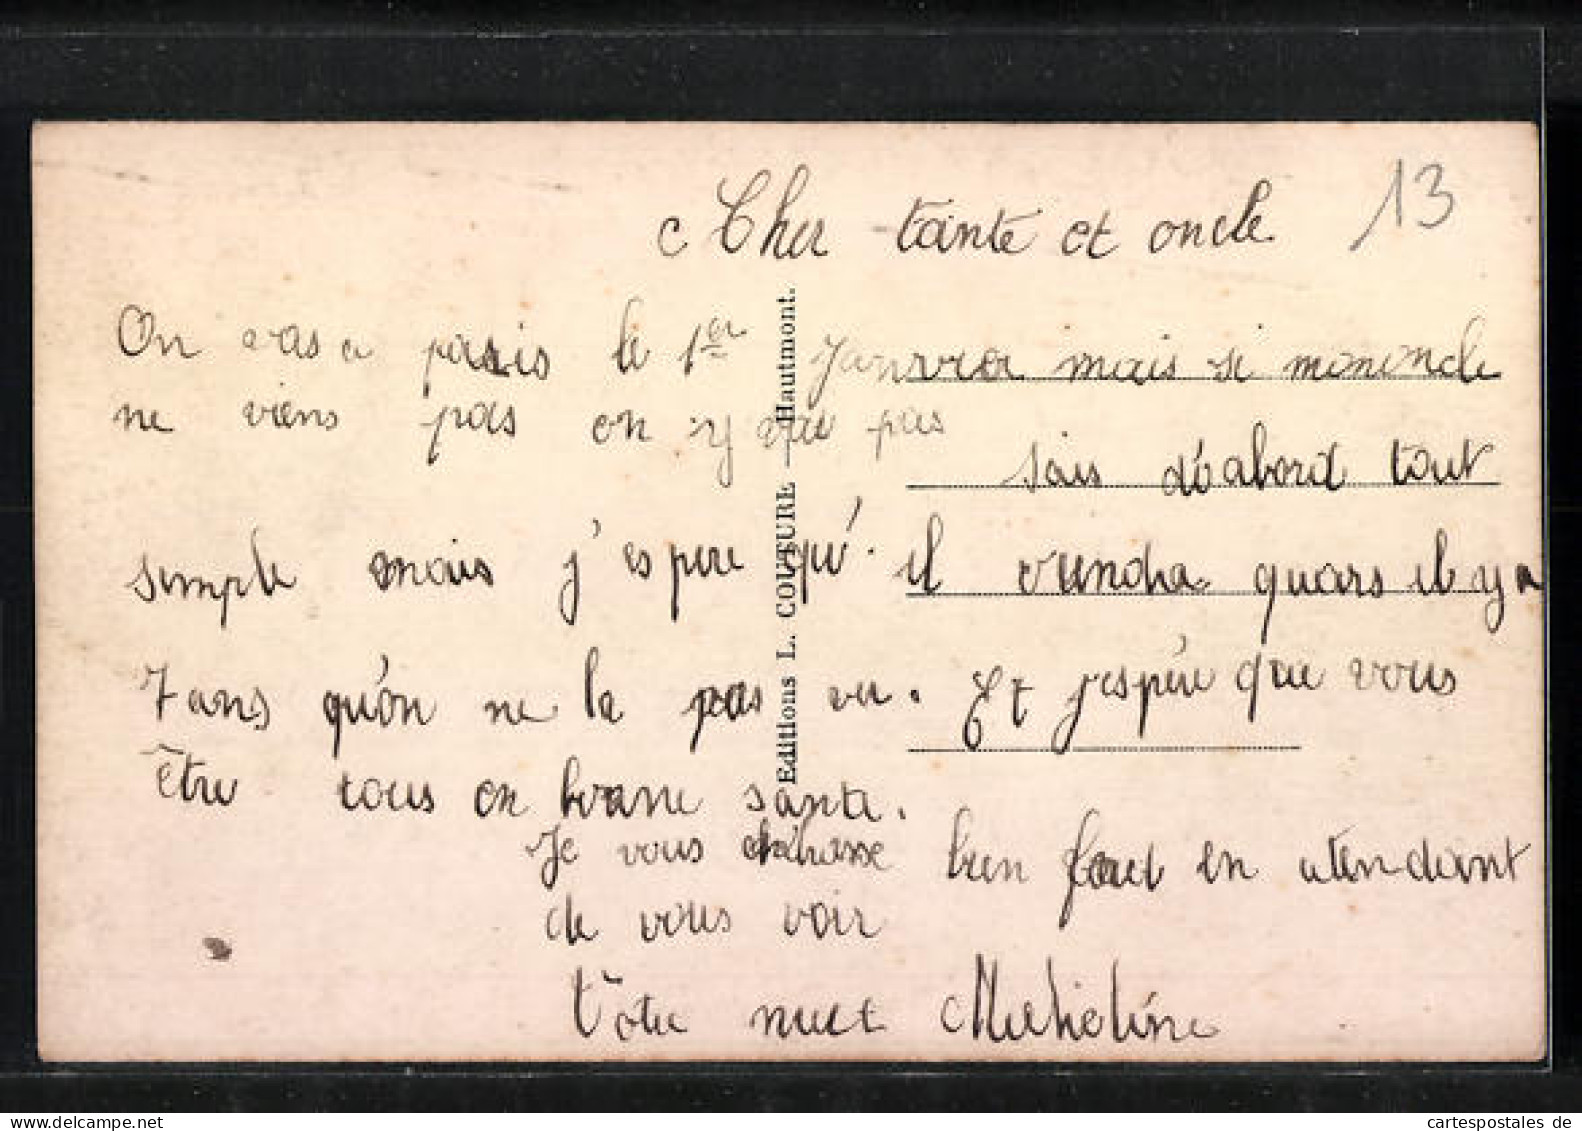 Cher tante et oncle
13
On vas a paris le 1er Janvrier mais si mononcle
ne viens pas on y vai pas
sais d'abord tout
simple mais j'espere qu'il viendra quars il y a
7 ans qu'on ne la pas vu. Et j'espére que vous
être tous en bonne sante.
Je vous enbrasse bien fort en atendant
de vous voir
Vôtre Micheline
Editions L. COUTURE — Hautmont.
cartespostales de